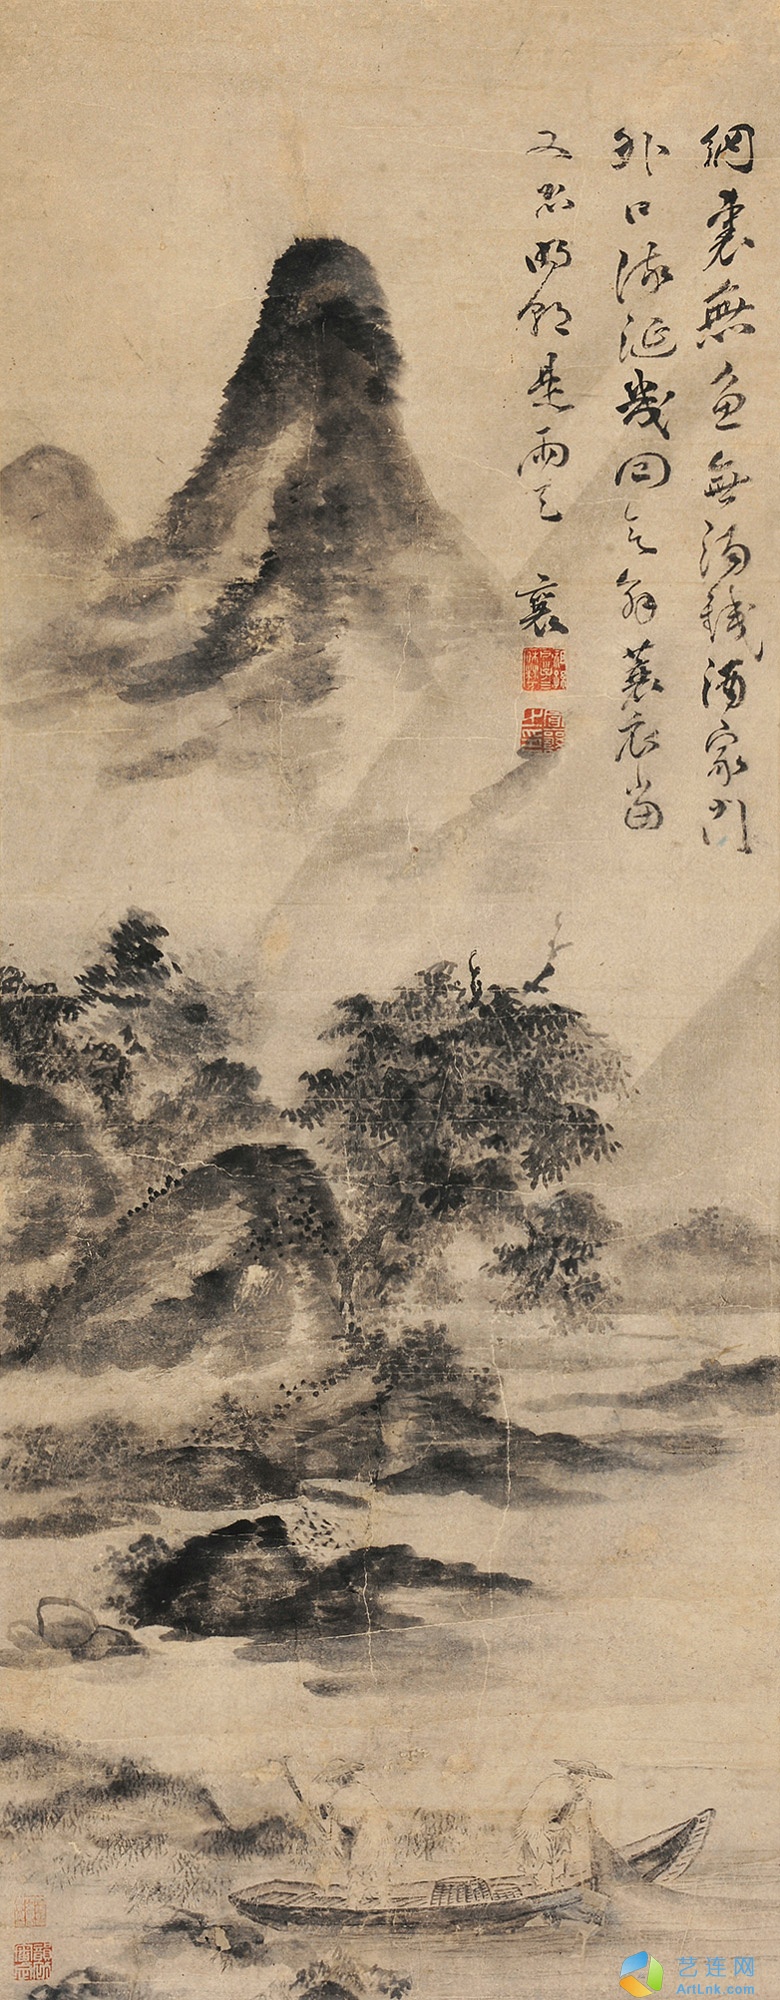 網裏無魚無酒錢酒家門
外口流涎幾回欲解蓑衣當
又恐明朝是雨天
襄
艺连网
ArtLnk.com